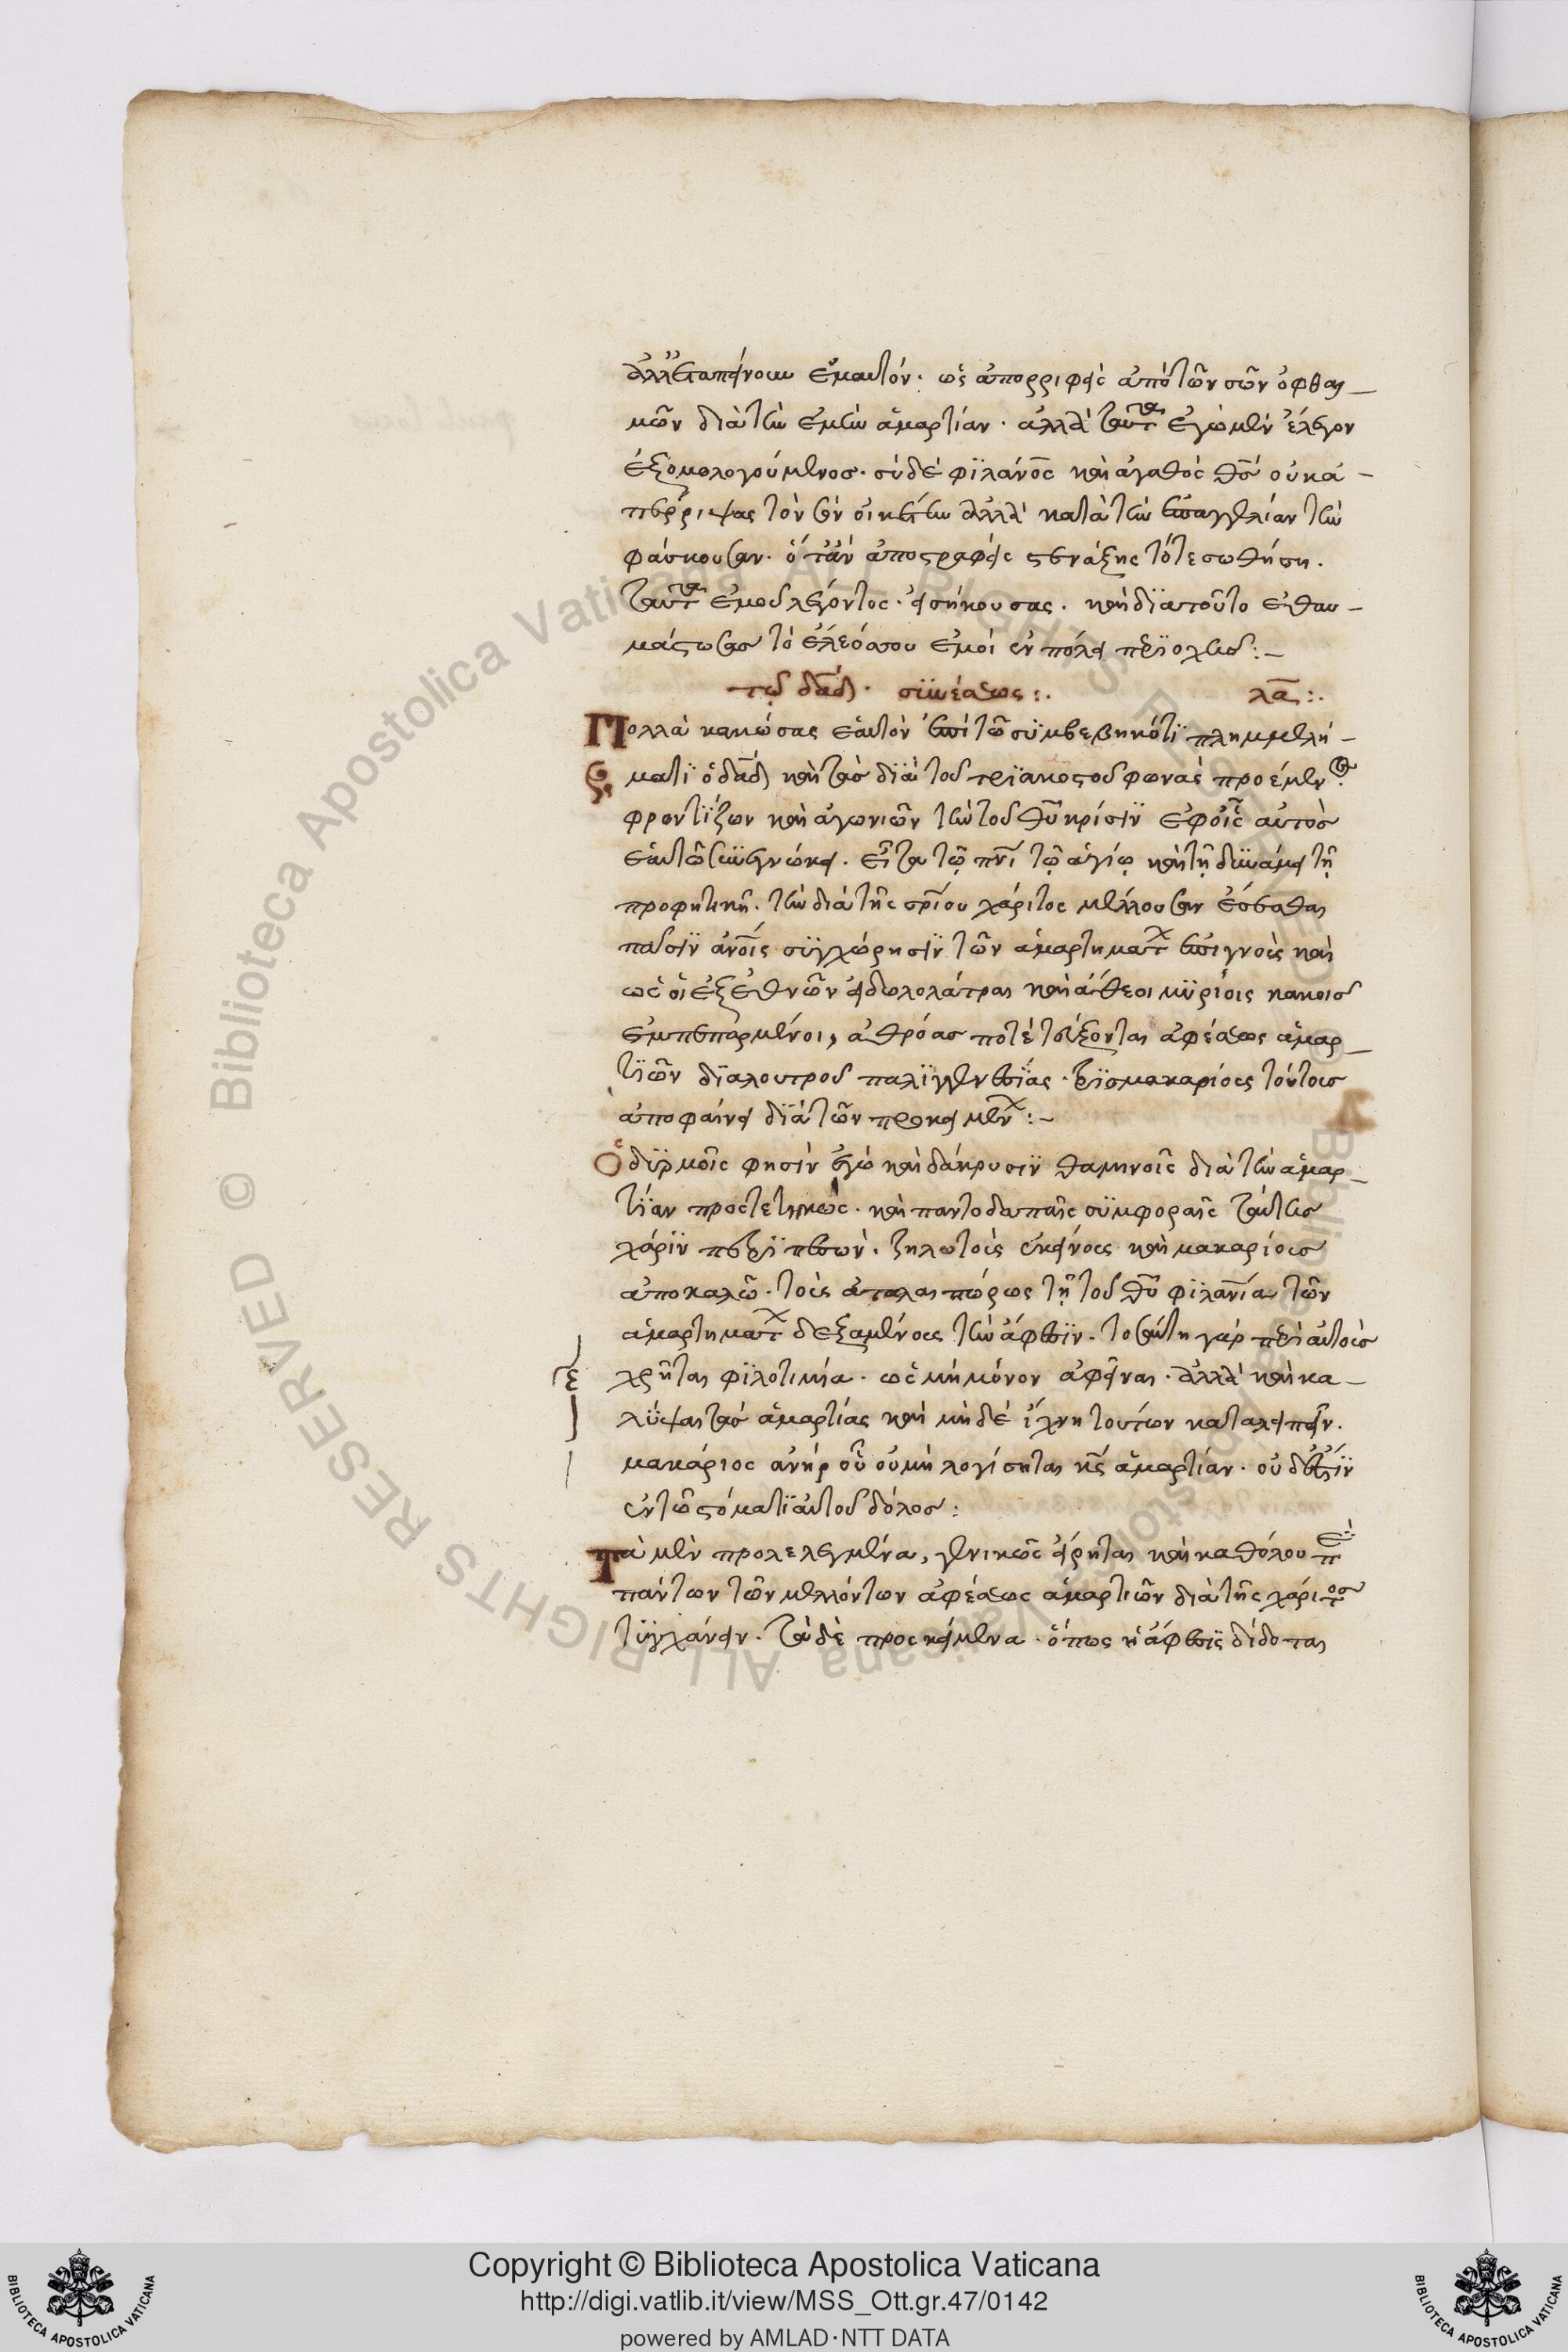 ἀλλ' ἐταπείνουν ἐμαυτόν· ὡς ἀπορριφεὶς ἀπὸ τῶν σῶν ὀφθαλ
μῶν διὰ τὴν ἐμὴν ἁμαρτίαν· ἀλλὰ ταῦτα ἐγὼ μὲν ἔλεγον
ἐξομολογούμενος· σὺ δὲ φιλάνος καὶ ἀγαθὸς θς οὐκ ἀ-
πέρριψας τὸν σὸν οἰκέτην ἀλλὰ κατὰ τὴν ἐπαγγελίαν τὴν
φάσκουσαν· ὅταν ἀποστραφεὶς στενάξης τότε σωθήση.
ταῦτα ἐμοῦ λέγοντος· εἰσήκουσας· καὶ διατοῦτο ἐθαυ-
μάστωσας τὸ ἔλεός σου ἐμοὶ ἐν πόλει περιοχῆς:-
τῷ δαδ· συνέσεως:. λα:.
Πολλὰ κακώσας ἑαυτὸν ἐπὶ τῷ συμβεβηκότι πλημμελή-
ματι ὁ δαδ καὶ τὰς διὰ τοῦ τριακοστοῦ φωνὰς προέμενος
φροντίζων καὶ ἀγωνιῶν τὴν τοῦ θυ κρίσιν ἐφοῖς αὐτὸς
ἑαυτῶ συνεγνώκει. εἶτα τῷ πνι τῷ ἁγίῳ καὶ τῇ δυνάμει τῇ
προφητικῇ. τὴν διὰ τῆς σρίου χάριτος μέλλουσαν ἔσεσθαι
πᾶσιν ἀνοις συγχώρησιν τῶν ἁμαρτημάτων ἐπιγνοὺς καὶ
ὡς οἱ ἐξ ἐθνῶν εἰδωλολάτραι καὶ ἄθεοι μυρίοις κακοῖς
ἐμπεπαρμένοι, ἀθρόας ποτὲ τεύξονται ἀφέσεως ἁμαρ
τιῶν διὰ λουτροῦ παλιγγενεσίας· τρισμακαρίους τούτους
ἀποφαίνει διὰ τῶν προκειμένων:-
Ὀδυρμοῖς φησὶν ἐγὼ καὶ δάκρυσιν θαμινοῖς διὰ τὴν ἁμαρ
τίαν προστετηκὼς· καὶ παντοδαπαῖς συμφοραῖς ταύτης
χάριν περιπεσὼν. ζηλωτοὺς ἐκείνους καὶ μακαρίους
ἀποκαλῶ· τοὺς ἀταλαιπώρως τῇ τοῦ θυ φιλανία τῶν
ἁμαρτημάτων δεξαμένους τὴν ἄφεσιν. τοσαύτη γὰρ περὶ αὐτοὺς
ε χρῆται φιλοτιμία· ὡς μὴ μόνον ἀφεῖναι· ἀλλὰ καὶ κα-
λύψαι τὰς ἁμαρτίας καὶ μὴ δὲ ἴχνη τούτων καταλειπεῖν.
μακάριος ἀνήρ οὗ οὐ μὴ λογίσηται κς ἁμαρτίαν· οὐδέ ἐστιν
ἐν τῶ στόματι αὐτοῦ δόλος:
Τὰ μὲν προλελεγμένα, γενικῶς εἴρηται καὶ καθόλου περὶ
πάντων τῶν μελλόντων ἀφέσεως ἁμαρτιῶν διὰ τῆς χάριτος
τυγχάνειν. τὰ δὲ προσκείμενα· ὅπως ἡ ἄφεσις δίδοται
Copyright © Biblioteca Apostolica Vaticana
http://digi.vatlib.it/view/MSS_Ott.gr.47/0142
powered by AMLAD·NTT DATA
BIBLIOTECA APOSTOLICA VATICANA
BIBLIOTECA APOSTOLICA VATICANA
© Biblioteca Apostolica Vaticana ALL RIGHTS RESERVED
© Biblioteca Apostolica Vaticana ALL RIGHTS RESERVED